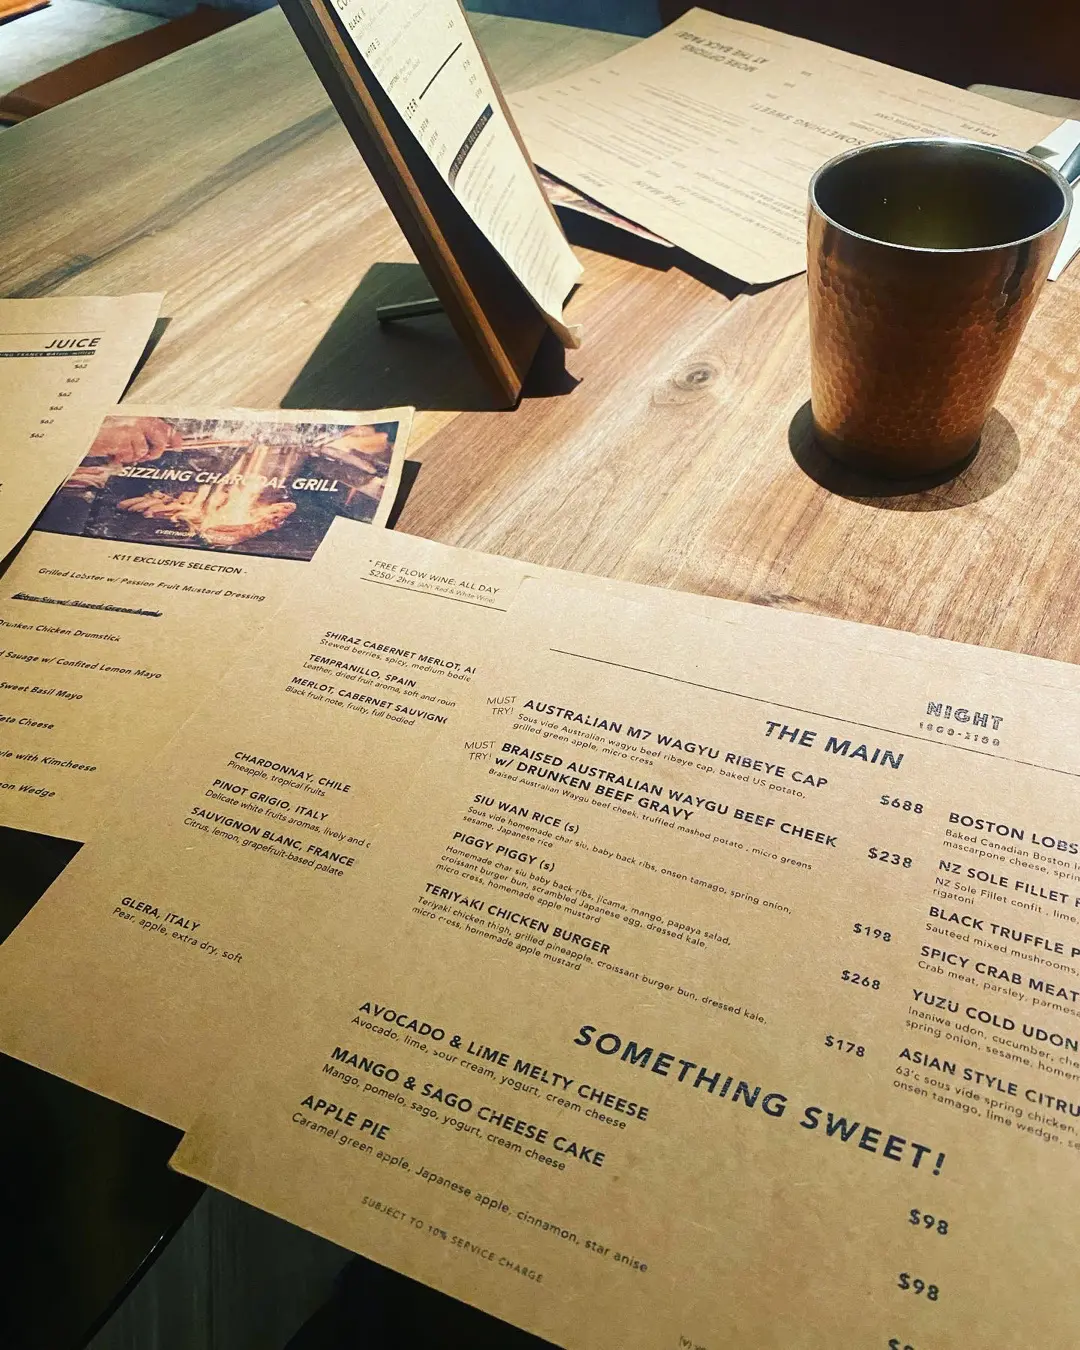 BLACK
WHITE
FILTER
MORE OPTIONS
AT THE BACK PAGE!
SOMETHING SWEET!
APPLE PIE
THE MAIN
JUICE
$62
$62
$62
$62
$62
$62
SIZZLING CHARCOAL GRILL
EVERYNIGHT
- K11 EXCLUSIVE SELECTION -
Grilled Lobster w/ Passion Fruit Mustard Dressing
Char Siu w/ Glazed Green Apple
Drunken Chicken Drumstick
Sauage w/ Confited Lemon Mayo
Sweet Basil Mayo
Feta Cheese
with Kimcheese
Wedge
* FREE FLOW WINE: ALL DAY
$250/ 2hrs (ANY Red & White Wine)
SHIRAZ CABERNET MERLOT,
Stewed berries, spicy, medium bodie
TEMPRANILLO, SPAIN
Leather, dried fruit aroma, soft and roun
MERLOT, CABERNET SAUVIGN
Black fruit note, fruity, full bodied
CHARDONNAY, CHILE
Pineapple, tropical fruits
PINOT GRIGIO, ITALY
Delicate white fruits aromas, lively and
SAUVIGNON BLANC, FRANCE
Citrus, lemon, grapefruit-based palate
GLERA, ITALY
Pear, apple, extra dry, soft
NIGHT
1800-2150
THE MAIN
MUST
TRY!
AUSTRALIAN M7 WAGYU RIBEYE CAP
Sous vide Australian wagyu beef ribeye cap, baked US potato,
grilled green apple, micro cress
$688
MUST
TRY!
BRAISED AUSTRALIAN WAYGU BEEF CHEEK
w/ DRUNKEN BEEF GRAVY
Braised Australian Waygu beef cheek, truffled mashed potato , micro greens
$238
SIU WAN RICE (s)
Sous vide homemade char siu, baby back ribs, onsen tamago, spring onion,
sesame, Japanese rice
$198
PIGGY PIGGY (s)
Homemade char siu baby back ribs, jicama, mango, papaya salad,
croissant burger bun, scrambled Japanese egg, dressed kale,
micro cress, homemade apple mustard
$268
TERIYAKI CHICKEN BURGER
Teriyaki chicken thigh, grilled pineapple, croissant burger bun, dressed kale,
micro cress, homemade apple mustard
$178
BOSTON LOBS
Baked Canadian Boston
mascarpone cheese, sprin
NZ SOLE FILLET
NZ Sole Fillet confit , lime,
rigatoni
BLACK TRUFFLE
Sautéed mixed mushrooms,
SPICY CRAB MEAT
Crab meat, parsley, parmesa
YUZU COLD UDON
Inaniwa udon, cucumber, che
spring onion, sesame, homem
ASIAN STYLE CITRU
63'c sous vide spring chicken,
onsen tamago, lime wedge,
SOMETHING SWEET!
AVOCADO & LiME MELTY CHEESE
Avocado, lime, sour cream, yogurt, cream cheese
$98
MANGO & SAGO CHEESE CAKE
Mango, pomelo, sago, yogurt, cream cheese
$98
APPLE PIE
Caramel green apple, Japanese apple, cinnamon, star anise
SUBJECT TO 10% SERVICE CHARGE